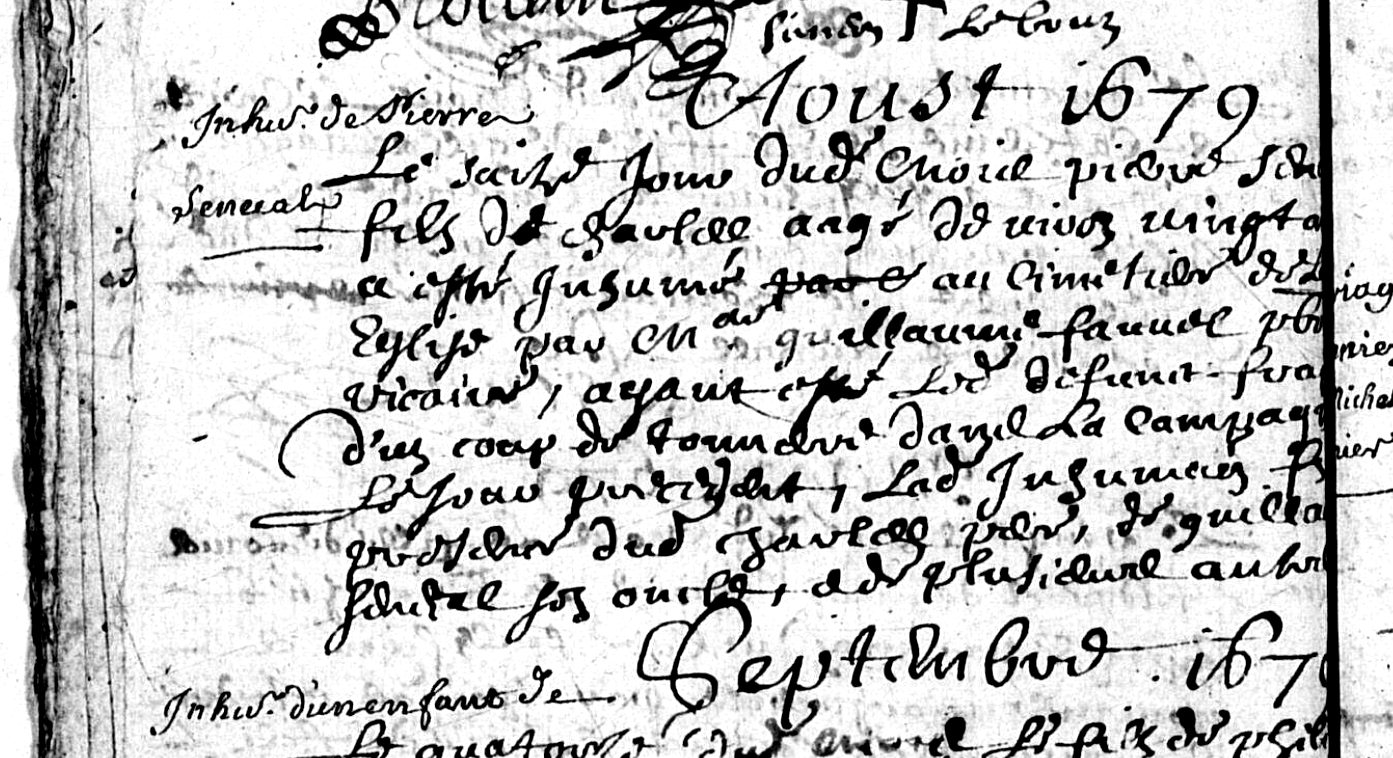 Simon Le bouz
Aoust 1679
Inhu͠. de Pierre
Seneeal
Le saize Jour dud. Mois pierre Sen
fils de charles aagé de viron vingt a
a esté Inhumé au Cimetiere de L
Eglise par Me guillaume fauvel pbr
vicaire, ayant esté Led. defunct fra
d'un coup de tonnerre dans La Campag
Le Jour precedent, Lad. Inhumaon f
presence dud. charles pere, de guilla
Senecal son oncle, & de plusieurs autre
Septembre 167
Inhu͠. d'un enfant de
Le quatorze dud. Mois Le fils de phil